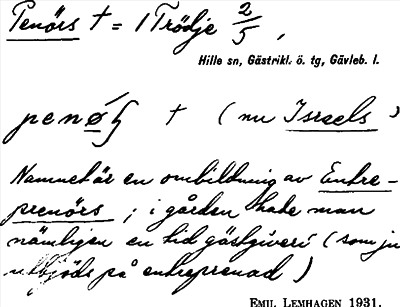 Penörs † = 1 Trödje 2/5,
Hille sn, Gästrikl. ö. tg, Gävleb. l.
† (nu Israels)
Namnet är en ombildning av Entre-
prenörs; i gården hade man
nämligen en tid gästgiveri (som ju
utbjöds på entreprenad)
EMIL LEMHAGEN 1931.